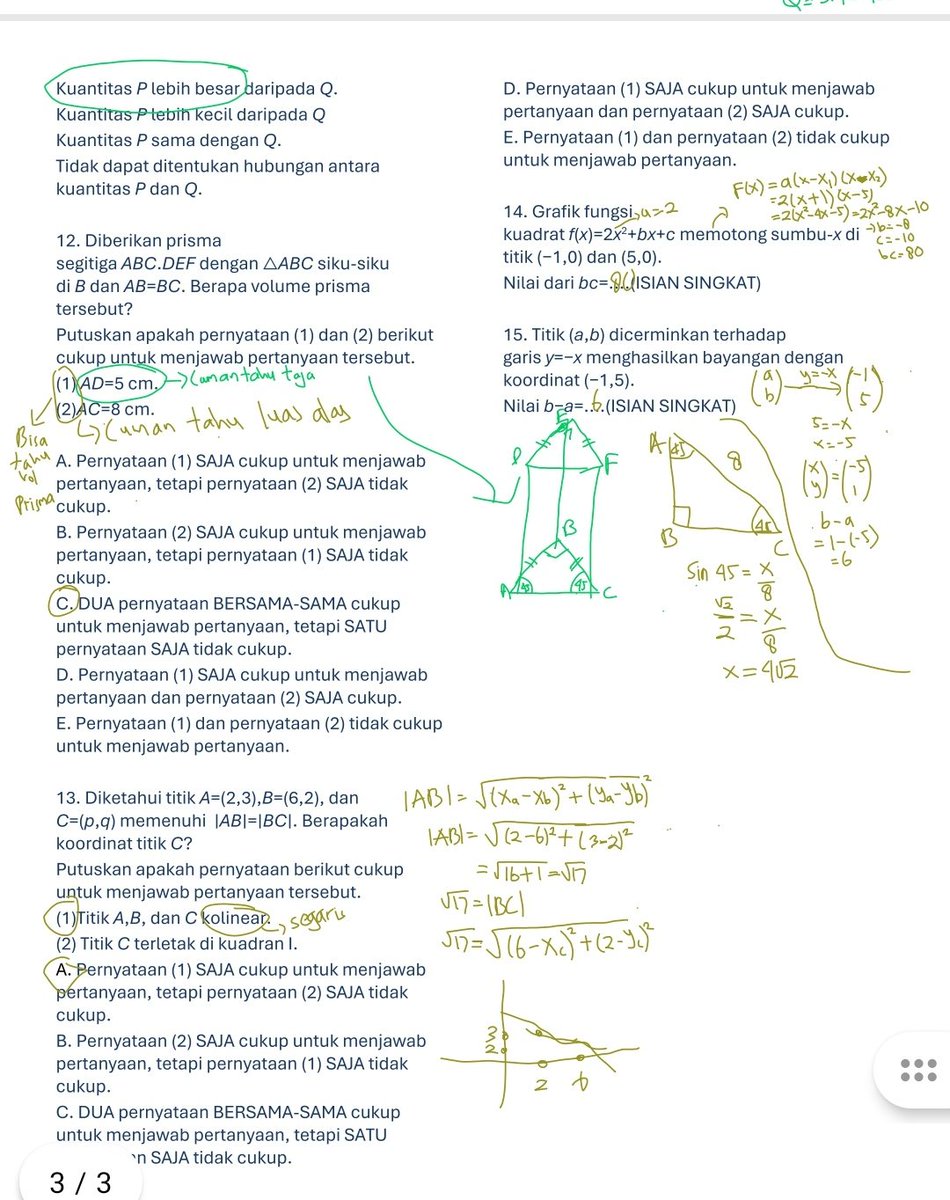 Kuantitas P lebih besar daripada Q.
Kuantitas P lebih kecil daripada Q
Kuantitas P sama dengan Q.
Tidak dapat ditentukan hubungan antara
kuantitas P dan Q.
12. Diberikan prisma
segitiga ABC.DEF dengan △ABC siku-siku
di B dan AB=BC. Berapa volume prisma
tersebut?
Putuskan apakah pernyataan (1) dan (2) berikut
cukup untuk menjawab pertanyaan tersebut.
(1) AD=5 cm. → Cuman tahu
(2) AC=8 cm. ↳ Cuman tahu luas alas
Bisa
tahu
vol
Prisma
A. Pernyataan (1) SAJA cukup untuk menjawab
pertanyaan, tetapi pernyataan (2) SAJA tidak
cukup.
B. Pernyataan (2) SAJA cukup untuk menjawab
pertanyaan, tetapi pernyataan (1) SAJA tidak
cukup.
C. DUA pernyataan BERSAMA-SAMA cukup
untuk menjawab pertanyaan, tetapi SATU
pernyataan SAJA tidak cukup.
D. Pernyataan (1) SAJA cukup untuk menjawab
pertanyaan dan pernyataan (2) SAJA cukup.
E. Pernyataan (1) dan pernyataan (2) tidak cukup
untuk menjawab pertanyaan.
13. Diketahui titik A=(2,3),B=(6,2), dan
C=(p,q) memenuhi |AB|=|BC|. Berapakah
koordinat titik C?
Putuskan apakah pernyataan berikut cukup
untuk menjawab pertanyaan tersebut.
(1)Titik A,B, dan C kolinear. → segaris
(2) Titik C terletak di kuadran I.
A. Pernyataan (1) SAJA cukup untuk menjawab
pertanyaan, tetapi pernyataan (2) SAJA tidak
cukup.
B. Pernyataan (2) SAJA cukup untuk menjawab
pertanyaan, tetapi pernyataan (1) SAJA tidak
cukup.
C. DUA pernyataan BERSAMA-SAMA cukup
untuk menjawab pertanyaan, tetapi SATU
n SAJA tidak cukup.
3 / 3
|AB| = √(xa-xb)²+(ya-yb)²
|AB| = √(2-6)²+(3-2)²
= √16+1 = √17
√17 = |BC|
√17 = √(6-xc)²+(2-yc)²
3
2
2 6
D. Pernyataan (1) SAJA cukup untuk menjawab
pertanyaan dan pernyataan (2) SAJA cukup.
E. Pernyataan (1) dan pernyataan (2) tidak cukup
untuk menjawab pertanyaan.
F(x) = a(x-x₁)(x-x₂)
= 2(x+1)(x-5)
= 2(x²-4x-5) = 2x²-8x-10
→ b=-8
c=-10
bc=80
14. Grafik fungsi → a=2
kuadrat f(x)=2x²+bx+c memotong sumbu-x di
titik (−1,0) dan (5,0).
Nilai dari bc=.80.(ISIAN SINGKAT)
15. Titik (a,b) dicerminkan terhadap
garis y=−x menghasilkan bayangan dengan
koordinat (−1,5).
Nilai b−a=..6.(ISIAN SINGKAT)
(a b) y=-x → (-1 5)
5=-x
x=-5
(x y) = (-5 1)
b-a
= 1-(-5)
= 6
E
F
B
A 45 45 C
A 45
8
B 45 C
Sin 45 = x/8
√2/2 = x/8
x = 4√2